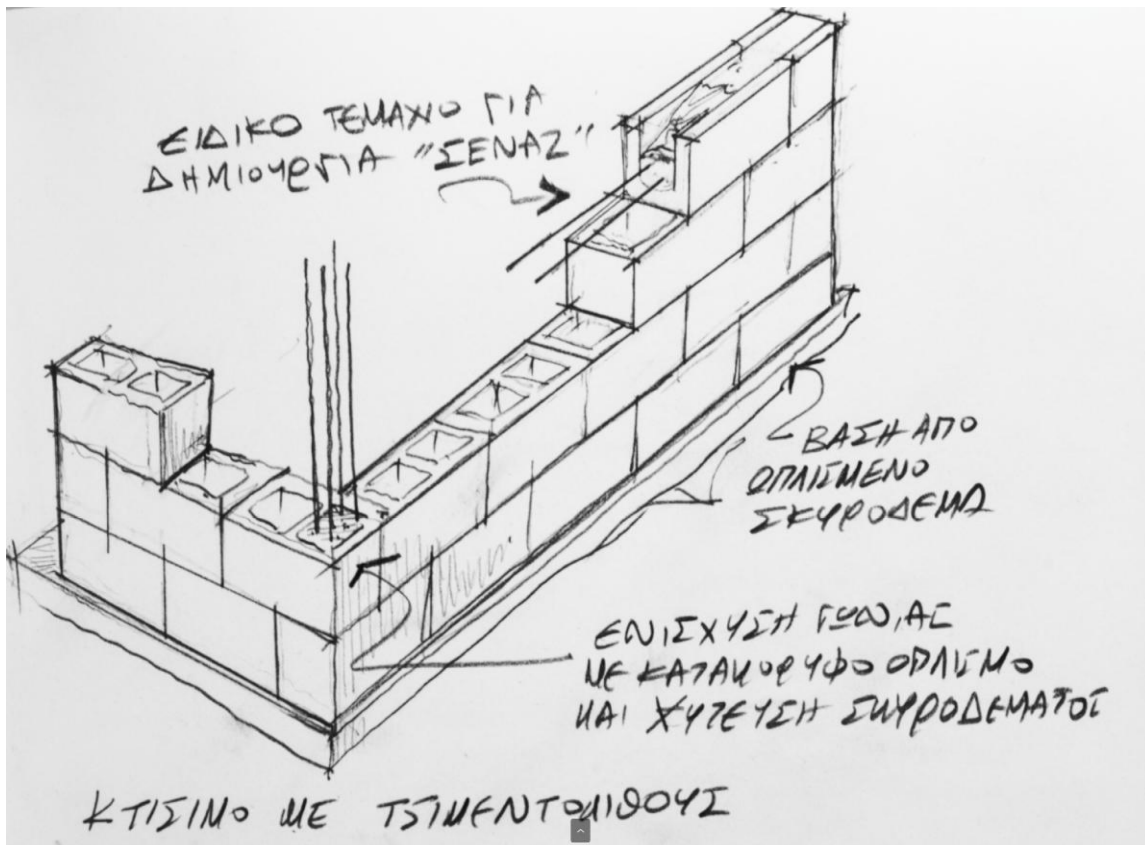 ΕΙΔΙΚΟ ΤΕΜΑΧΙΟ ΓΙΑ
ΔΗΜΙΟΥΡΓΙΑ "ΣΕΝΑΖ"
ΒΑΣΗ ΑΠΟ
ΟΠΛΙΣΜΕΝΟ
ΣΚΥΡΟΔΕΜΑ
ΕΝΙΣΧΥΣΗ ΓΩΝΙΑΣ
ΜΕ ΚΑΤΑΚΟΡΥΦΟ ΟΠΛΙΣΜΟ
ΚΑΙ ΧΥΤΕΥΣΗ ΣΚΥΡΟΔΕΜΑΤΟΣ
ΚΤΙΣΙΜΟ ΜΕ ΤΣΙΜΕΝΤΟΛΙΘΟΥΣ